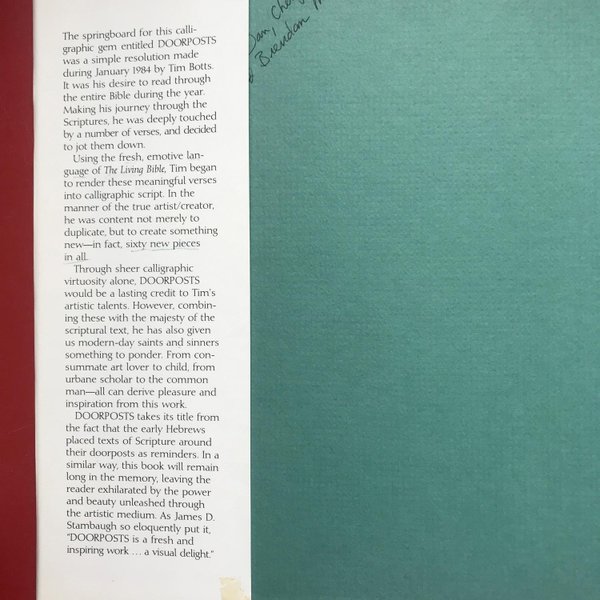 The springboard for this calli-
graphic gem entitled DOORPOSTS
was a simple resolution made
during January 1984 by Tim Botts.
It was his desire to read through
the entire Bible during the year.
Making his journey through the
Scriptures, he was deeply touched
by a number of verses, and decided
to jot them down.
Using the fresh, emotive lan-
guage of The Living Bible, Tim began
to render these meaningful verses
into calligraphic script. In the
manner of the true artist/creator,
he was content not merely to
duplicate, but to create something
new—in fact, sixty new pieces
in all.
Through sheer calligraphic
virtuosity alone, DOORPOSTS
would be a lasting credit to Tim's
artistic talents. However, combin-
ing these with the majesty of the
scriptural text, he has also given
us modern-day saints and sinners
something to ponder. From con-
summate art lover to child, from
urbane scholar to the common
man—all can derive pleasure and
inspiration from this work.
DOORPOSTS takes its title from
the fact that the early Hebrews
placed texts of Scripture around
their doorposts as reminders. In a
similar way, this book will remain
long in the memory, leaving the
reader exhilarated by the power
and beauty unleashed through
the artistic medium. As James D.
Stambaugh so eloquently put it,
"DOORPOSTS is a fresh and
inspiring work ... a visual delight."
Brendan